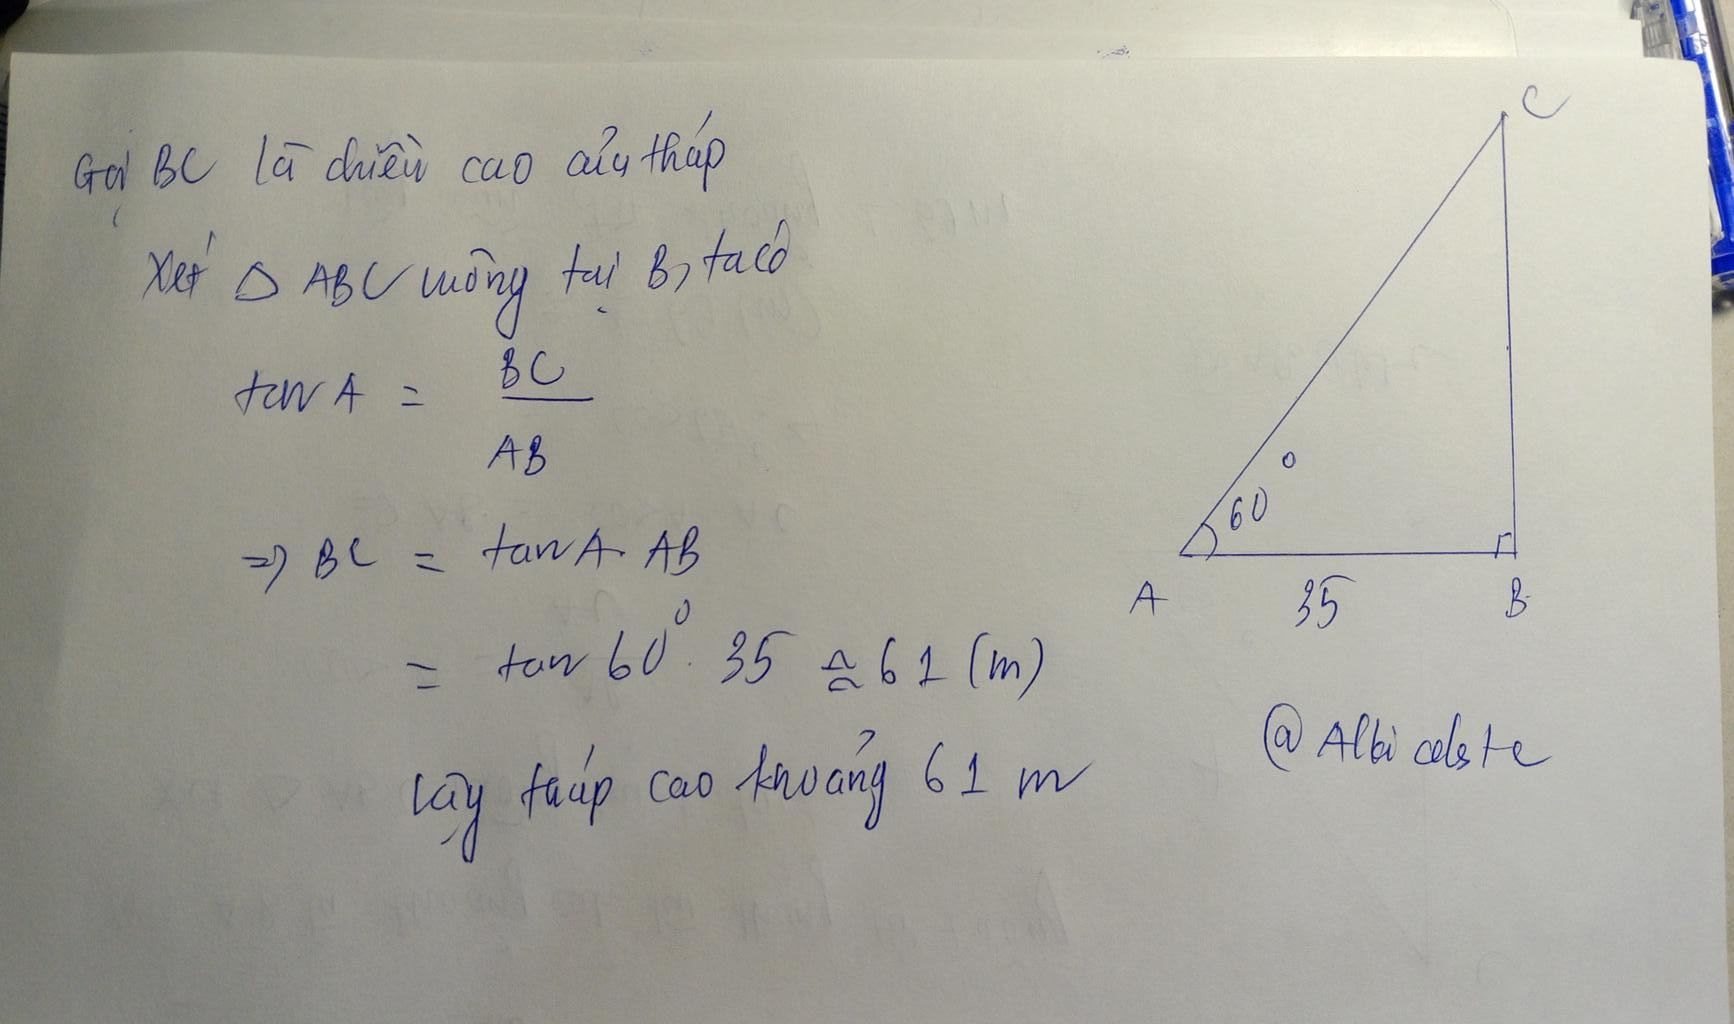 Gọi BC là chiều cao của tháp
Xét Δ ABC vuông tại B, ta có
tan A = BC
AB
=> BC = tan A. AB
= tan 60°. 35 ≈ 61 (m)
Vậy tháp cao khoảng 61 m
C
60°
A
35
B
@ Albi celeste